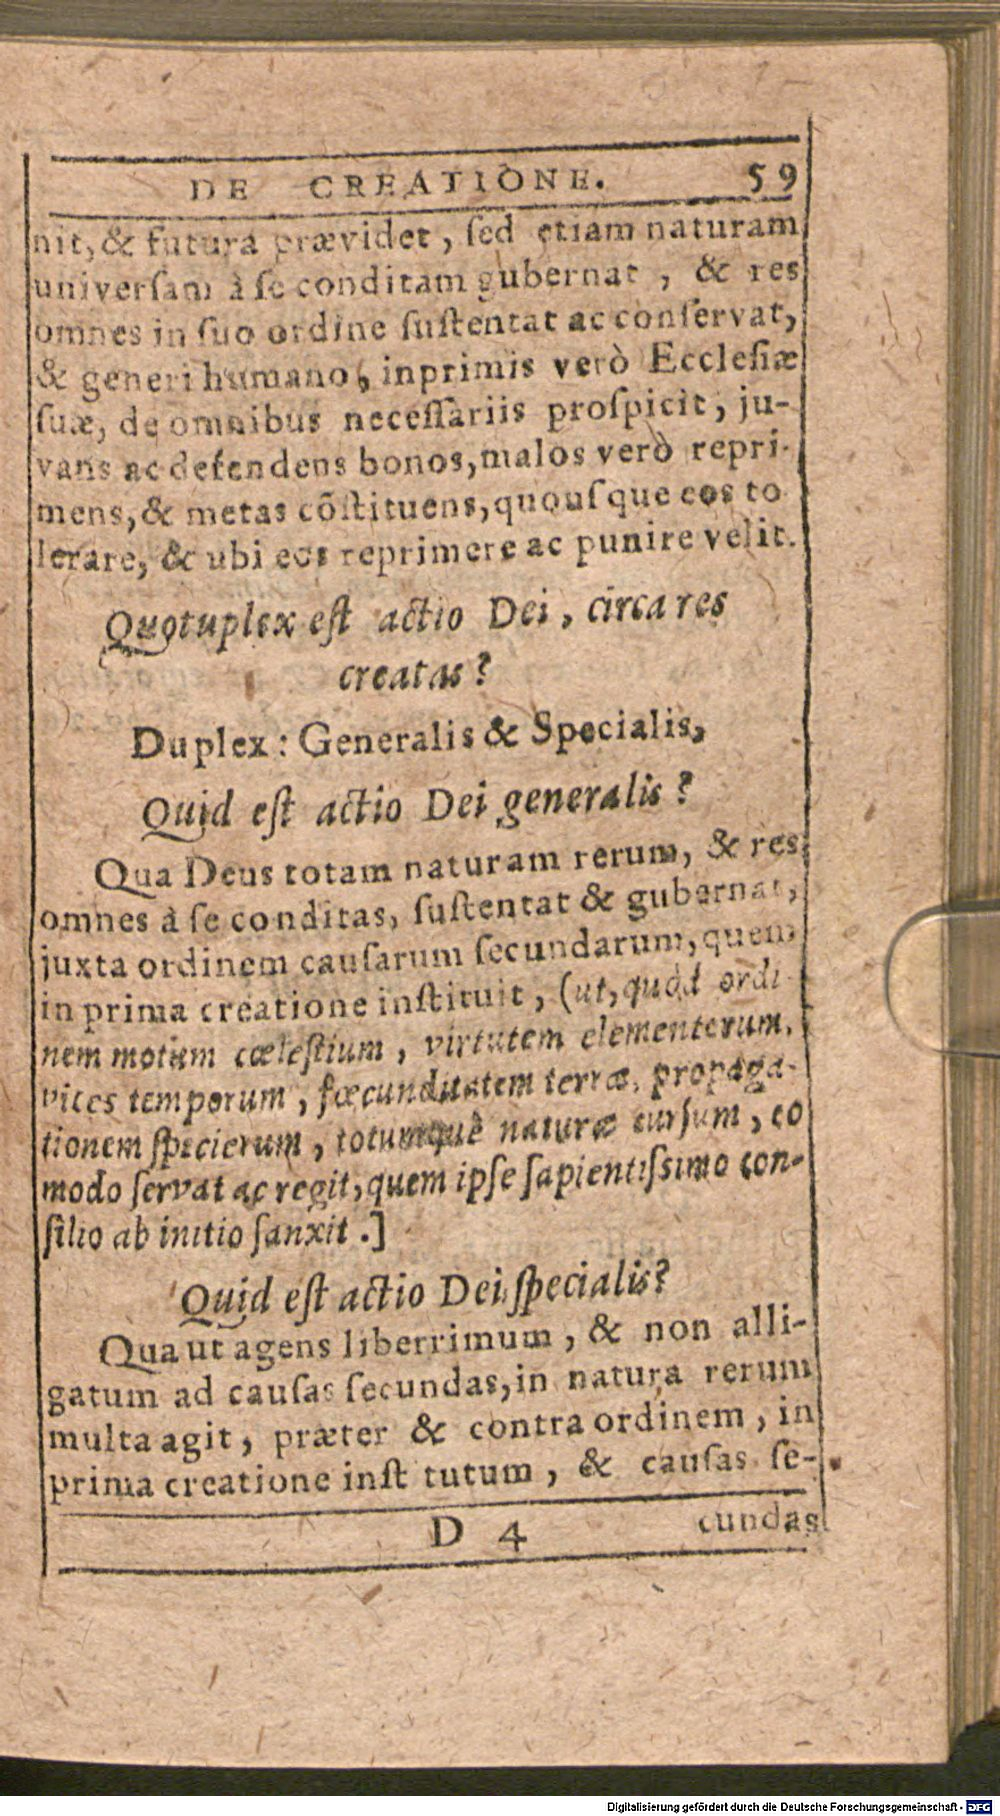 DE CREATIONE. 59
nit, & futura prævidet, ſed etiam naturam
univerſam à ſe conditam gubernat, & res
omnes in ſuo ordine ſuſtentat ac conſervat,
& generi humano, inprimis verò Eccleſiæ
ſuæ, de omnibus neceſſariis proſpicit, ju-
vans ac defendens bonos, malos verò repri-
mens, & metas cõſtituens, quouſque eos to
lerare, & ubi eos reprimere ac punire velit.
Quotuplex eſt actio Dei, circa res
creatas?
Duplex: Generalis & Specialis,
Quid eſt actio Dei generalis?
Qua Deus totam naturam rerum, & res
omnes à ſe conditas, ſuſtentat & gubernat,
juxta ordinem cauſarum ſecundarum, quem
in prima creatione inſtituit, (ut, quòd ordi-
nem motuum cœleſtium, virtutem elementorum,
vices temporum, fœcunditatem terræ, propaga-
tionem ſpecierum, totumquè naturæ curſum, eo
modo ſervat ac regit, quem ipſe ſapientiſsimo con-
ſilio ab initio ſanxit.]
Quid eſt actio Dei ſpecialis?
Qua ut agens liberrimum, & non alli-
gatum ad cauſas ſecundas, in natura rerum
multa agit, præter & contra ordinem, in
prima creatione inſt tutum, & cauſas ſe-
D 4 cundas
Digitalisierung gefördert durch die Deutsche Forschungsgemeinschaft - DFG